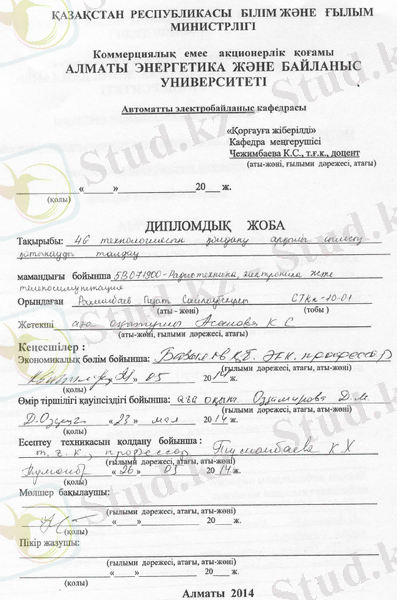 ҚАЗАҚСТАН РЕСПУБЛИКАСЫ БІЛІМ ЖӘНЕ ҒЫЛЫМ
МИНИСТРЛІГІ
Коммерциялық емес акционерлік қоғамы
АЛМАТЫ ЭНЕРГЕТИКА ЖӘНЕ БАЙЛАНЫС
УНИВЕРСИТЕТІ
Автоматты электробайланыс кафедрасы
«Қорғауға жіберілді»
Кафедра меңгерушісі
Чежимбаева К.С., т.ғ.к., доцент
(аты-жөні, ғылыми дәрежесі, атағы)
«___»____________20___ж.
(қолы)
ДИПЛОМДЫҚ ЖОБА
Тақырыбы: 4G технологиясын қолдану арқылы
талдау
мамандығы бойынша 5В071900-Радиотехника, электроника және
телекоммуникация
Орындаған
(аты - жөні) (тобы)
Жетекші аға оқытушы Асанова К С
(аты-жөні, ғылыми дәрежесі, атағы)
Кеңесшілер:
Экономикалық бөлім бойынша: профессор
(ғылыми дәрежесі, атағы, аты-жөні)
05 2014 ж.
(қолы)
Өмір тіршілігі қауіпсіздігі бойынша: аға оқыт. Д.М.
(ғылыми дәрежесі, атағы, аты-жөні)
«23» мая 2014 ж.
(қолы)
Есептеу техникасын қолдану бойынша:
т.ғ.к., профессор К Х
(ғылыми дәрежесі, атағы, аты-жөні)
«26» 05 2014 ж.
(қолы)
Мөлшер бақылаушы:
(ғылыми дәрежесі, атағы, аты-жөні)
«___»____________20___ж.
(қолы)
Пікір жазушы:
(ғылыми дәрежесі, атағы, аты-жөні)
«___»____________20___ж.
(қолы)
Алматы 2014
Stud.kz